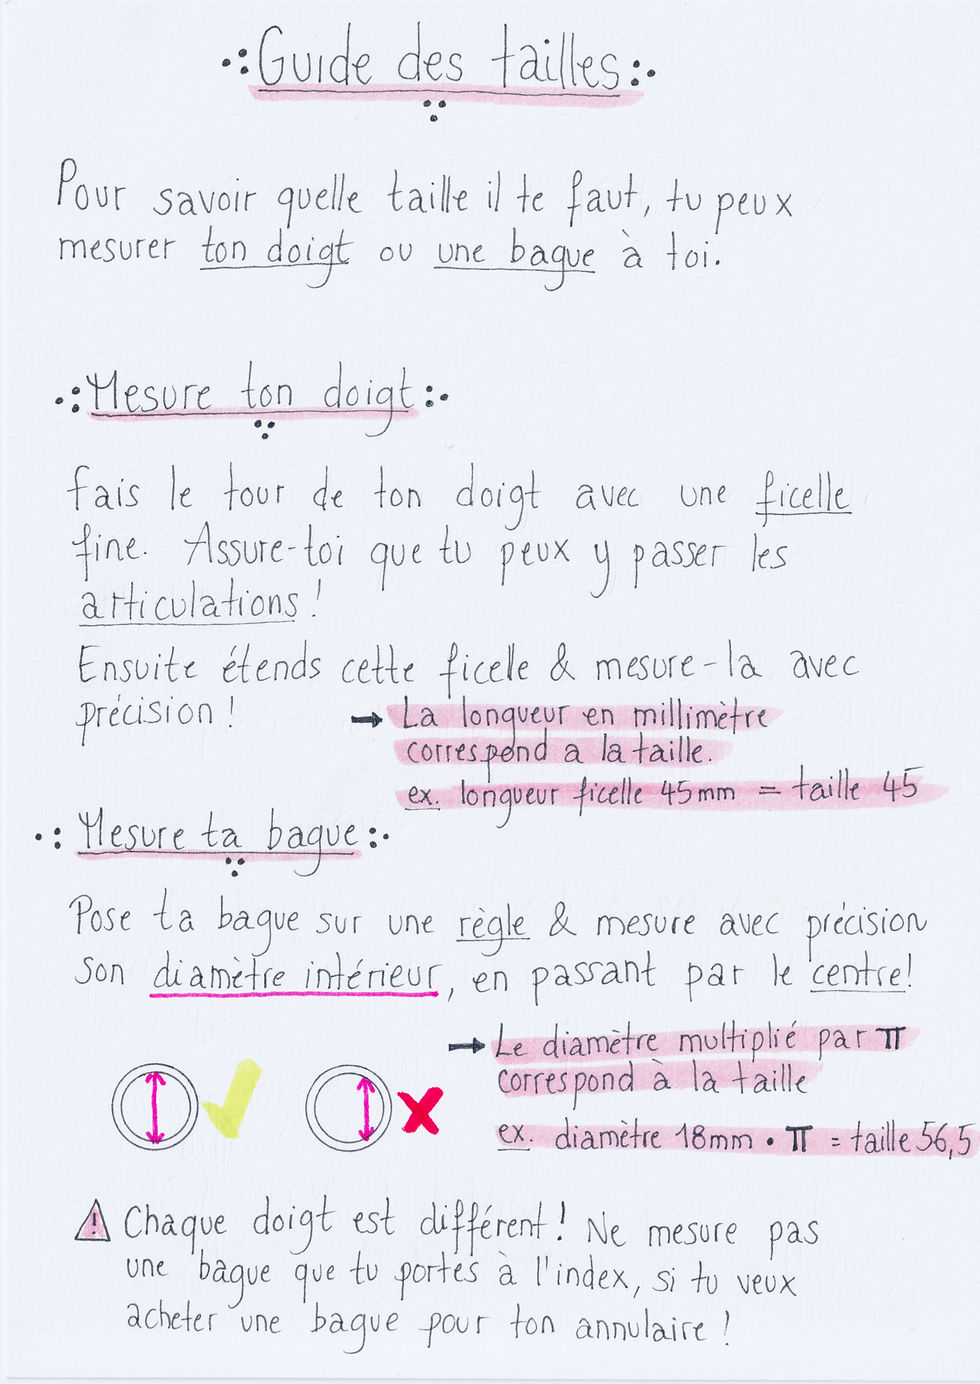 Guide des tailles
Pour savoir quelle taille il te faut, tu peux
mesurer ton doigt ou une bague à toi.
Mesure ton doigt
Fais le tour de ton doigt avec une ficelle
fine. Assure-toi que tu peux y passer les
articulations !
Ensuite étends cette ficelle & mesure-la avec
précision !
→ La longueur en millimètre
correspond a la taille.
ex. longueur ficelle 45mm = taille 45
Mesure ta bague
Pose ta bague sur une règle & mesure avec précision
son diamètre intérieur, en passant par le centre!
→ Le diamètre multiplié par π
correspond à la taille
ex. diamètre 18mm • π = taille 56,5
! Chaque doigt est différent! Ne mesure pas
une bague que tu portes à l'index, si tu veux
acheter une bague pour ton annulaire !